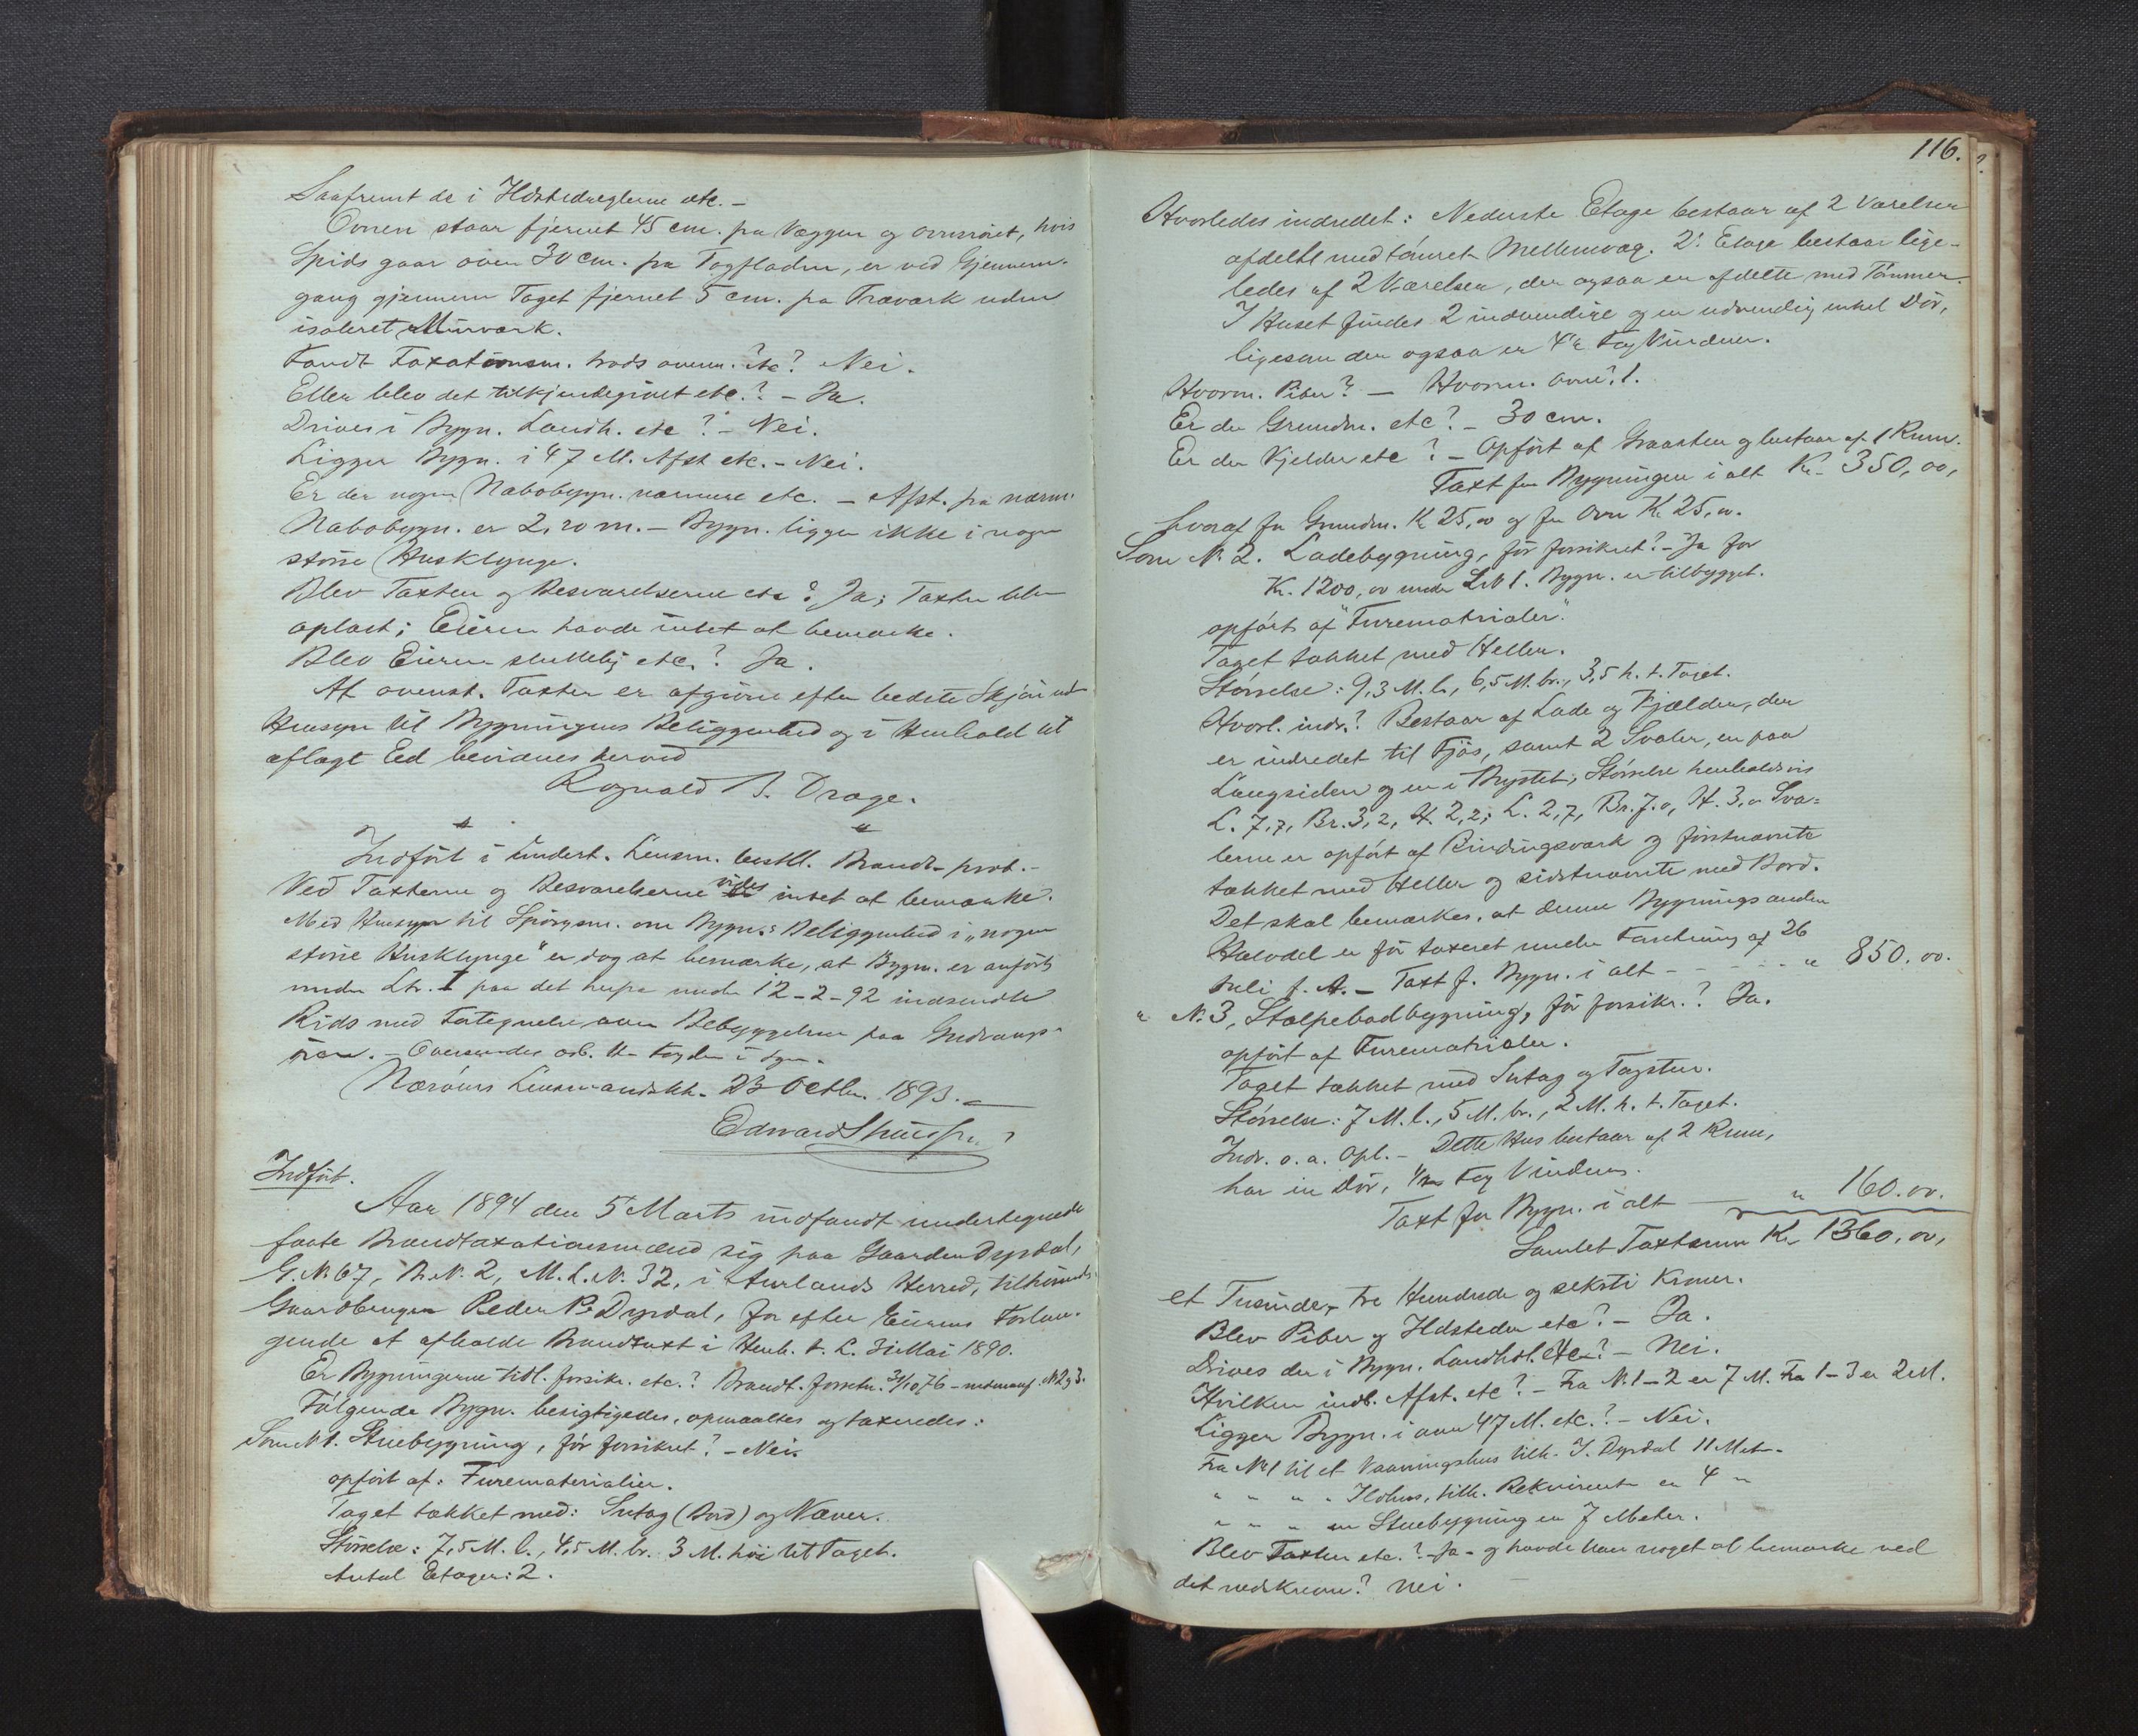 Saafremt de i Ildstedreglerne etc. –
Ovnen staar fjernet 45 cm. fra Væggen og ovnsröret, hvis
Spids gaar over 30 cm. fra Tagfladen, er ved Gjennem-
gang gjennem Taget fjernet 5 cm. fra Træværk uden
isoleret Murværk.
Fandt Taxationsm. trods ovenn. etc? Nei.
Eller blev det tilkjendegivet etc.? – Ja.
Drives i Bygn. Landh. etc? – Nei.
Ligger Bygn. i 47 M. Afst etc. – Nei.
Er der nogen Nabobygn. nærmere etc. – Afst. fra nærm.
Nabobygn. er 2,20 m. – Bygn. ligger ikke i nogen
större Husklynge.
Blev Taxten og Besvarelserne etc? Ja; Taxten blev
oplæst; Eieren havde intet at bemærke.
Blev Eieren skellelig etc.? Ja.
At ovenst. Taxter er afgivne efter bedste Skjön med
Hensyn til Bygningens Beliggenhed og i Henhold til
aflagt Ed bevidnes herved
Rognald B. Drage.
Indfört i undert. Lensm. bestill. Brandt-prot. –
Ved Taxterne og Besvarelserne vides intet at bemærke.
Med Hensyn til Spörgsm. om Bygn.s Beliggenhed i „nogen
större Husklynge" er dog at bemærke, at Bygn. er anfört
under Ltr. I paa det herfra under 12-2-92 indsendte
Rids med Fategnelse over Bebyggelsen paa Gudvang-
ören. – Oversendes
Næröens Lensmandskt. 23 Octbr. 1893. –
Edward
Indfört.
Aar 1894 den 5 Marts indfandt undertegnede
faste Brandtaxationsmænd sig paa Gaarden Dyrdal,
G. No 67, B. N. 2, M. L. N. 32, i Aurlands Herred, tilhörende
Gaardbruger Peder P. Dyrdal, for efter Eierens Forlan-
gende at afholde Brandtaxt i Henh. t. L. 31 Mai 1890.
Er Bygningerne tidl. forsikr. etc.? Brandt. forretn. 31/10 76 – No 2 & 3.
Fölgende Bygn. besigtigedes, opmaaltes og taxeredes:
Som No 1. Stuebygning, för forsikret? – Nei.
opfört af: Furematerialier.
Taget tækket med: Sutag (Bord) og Næver.
Störrelse: 7,5 M. l., 4,5 M. br. 3 M. höi til Taget.
Antal Etager: 2.
116.
Hvorledes indredet: Nederste Etage bestaar af 2 Værelser
afdelte med tömret Mellemvæg. 2. Etage bestaar lige-
ledes af 2 Værelser, der ogsaa er afdelte med Tömmer.
I Huset findes 2 indvendige og en udvendig enkel Dör,
ligesom der ogsaa er 4½ Fag Vinduer.
Hvorm. Piber? – Hvorm. Ovne? 1.
Er der Grundm. etc? – 30 cm.
Er der Kjelder etc? – Opfört af Graasten og bestaar af 1 Rum.
Taxt for Bygningen i alt Kr. 350,00,
hvoraf for Grundm. Kr 25,00 og for Ovn Kr. 25,00.
Som No 2. Ladebygning, för forsikret? – Ja for
Kr. 1200,00 under Litr 1. Bygn. er tilbygget.
opfört af "Furematrialer".
Taget tækket med Heller.
Störrelse: 9,3 M. l., 6,5 M. br., 3,5 h. t. Taget.
Hvorl. indr.? Bestaar af Lade og Kjælder, der
er indredet til Fjös, samt 2 Svaler, en paa
Langsiden og en i Brystet; Störrelse henholdsvis
L. 7,7, Br. 3,2, H. 2,2; L. 2,7, Br. 7.0, H. 3,0 Sva-
lerne er opfört af Bindingsværk og förstnævnte
tækket med Heller og sidstnævnte med Bord.
Det skal bemærkes, at denne Bygnings anden
Halvdel er för taxeret under Forretning af 26
Juli f. A. – Taxt f. Bygn. i alt - - - - " 850.00.
" No 3, Stolpebodbygning, för forsikr.? Ja.
opfört af Furematrialer.
Taget tækket med Sutag og Tagsten.
Störrelse: 7 M. l., 5 M. br., 2 M. h. t. Taget.
Indr. o. a. Opl. – Dette Hus bestaar af 2 Rum,
har en Dör, Fag Vinduer.
Taxt for Bygn. i alt — " 160.00.
Samlet Taxtsum Kr 1360,00,
et Tusinde, tre Hundrede og seksti Kroner.
Blev Piber og Ildsteder etc? – Ja.
Drives der i Bygn. Landhdl. etc? – Nei.
Hvilken indb. Afst. etc? – Fra No. 1–2 er 7 M. Fra 1–3 er 2 M.
Ligger Bygn. i over 47 M. etc.? – Nei.
Fra No 1 til et Vaaningshus tilh. J. Dyrdal 11 Met.
" " " " Ildhus, tilh. Rekvirenten er 4 "
" " " en Stuebygning er 7 Meter.
Blev Taxten etc.? – Ja – og havde han noget at bemærke ved
det nedskrevne? Nei.